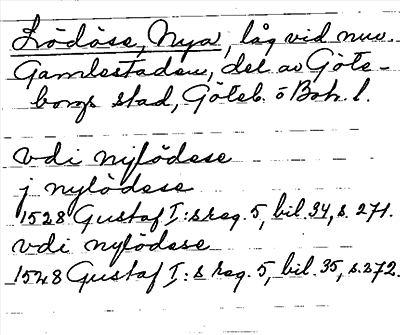 Lödöse, Nya, låg vid nuv.
Gamlestaden, del av Göte-
borgs stad, Göteb. o Boh. l.
vdi nylödese
j nylödese
1528 Gustaf I:s reg. 5, bil. 34, s. 271.
vdi nylödese
1528 Gustaf I:s reg. 5, bil. 35, s. 272.